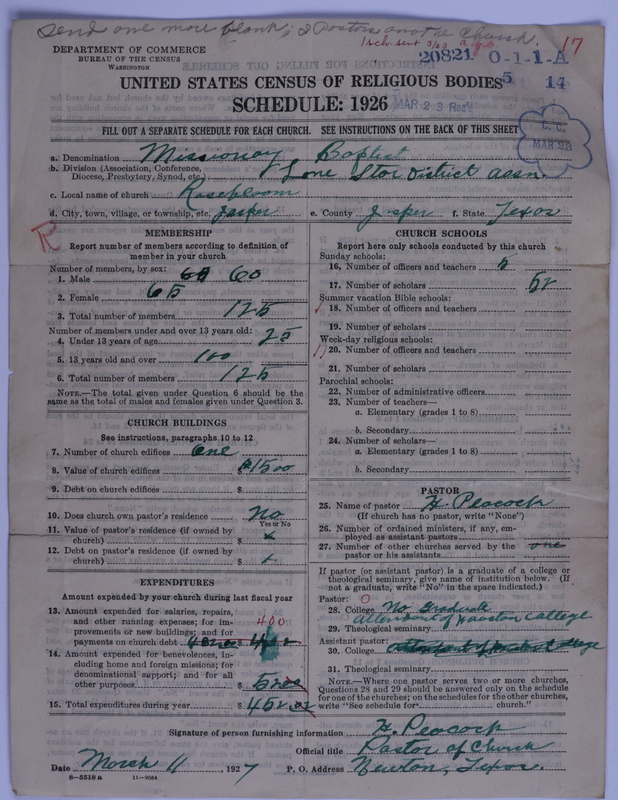 Send one more blank; I Pastors another Church.
1 sch. sent 3/23
17
DEPARTMENT OF COMMERCE
BUREAU OF THE CENSUS
WASHINGTON
20821 0-1-1-A
5 14
UNITED STATES CENSUS OF RELIGIOUS BODIES
SCHEDULE: 1926
MAR 23 Rec'd
C. C.
MAR 23
FILL OUT A SEPARATE SCHEDULE FOR EACH CHURCH. SEE INSTRUCTIONS ON THE BACK OF THIS SHEET
a. Denomination Missionary Baptist
b. Division (Association, Conference, Diocese, Presbytery, Synod, etc.) Lone Star District assn
c. Local name of church Rosebloom
d. City, town, village, or township, etc. Jasper e. County Jasper f. State Texas
R
MEMBERSHIP
Report number of members according to definition of member in your church
Number of members, by sex:
1. Male 60
2. Female 65
3. Total number of members 125
Number of members under and over 13 years old:
4. Under 13 years of age 25
5. 13 years old and over 100
6. Total number of members 125
NOTE.—The total given under Question 6 should be the same as the total of males and females given under Question 3.
CHURCH BUILDINGS
See instructions, paragraphs 10 to 12
7. Number of church edifices one
8. Value of church edifices $1500
9. Debt on church edifices $
10. Does church own pastor's residence No
Yes or No
11. Value of pastor's residence (if owned by church) $ x
12. Debt on pastor's residence (if owned by church) $ x
EXPENDITURES
Amount expended by your church during last fiscal year
13. Amount expended for salaries, repairs, and other running expenses; for improvements or new buildings; and for payments on church debt $ 400
14. Amount expended for benevolences, including home and foreign missions; for denominational support; and for all other purposes $ 52.00
15. Total expenditures during year $ 452.00
CHURCH SCHOOLS
Report here only schools conducted by this church
Sunday schools:
16. Number of officers and teachers 5
17. Number of scholars 52
Summer vacation Bible schools:
18. Number of officers and teachers
19. Number of scholars
Week-day religious schools:
20. Number of officers and teachers
21. Number of scholars
Parochial schools:
22. Number of administrative officers
23. Number of teachers—
a. Elementary (grades 1 to 8)
b. Secondary
24. Number of scholars—
a. Elementary (grades 1 to 8)
b. Secondary
PASTOR
25. Name of pastor H. Peacock
(If church has no pastor, write "None")
26. Number of ordained ministers, if any, employed as assistant pastors
27. Number of other churches served by the pastor or his assistants one
If pastor (or assistant pastor) is a graduate of a college or theological seminary, give name of institution below. (If not a graduate, write "No" in the space indicated.)
Pastor: O
28. College No graduate
attendant of Houston College
29. Theological seminary
Assistant pastor:
30. College
31. Theological seminary
NOTE.—Where one pastor serves two or more churches, Questions 28 and 29 should be answered only on the schedule for one of the churches; on the schedules for the other churches, write "See schedule for church."
Signature of person furnishing information H. Peacock
Official title Pastor of Church
Date March 11, 1927 P. O. Address Newton, Texas.
8-5518 a 11-9084